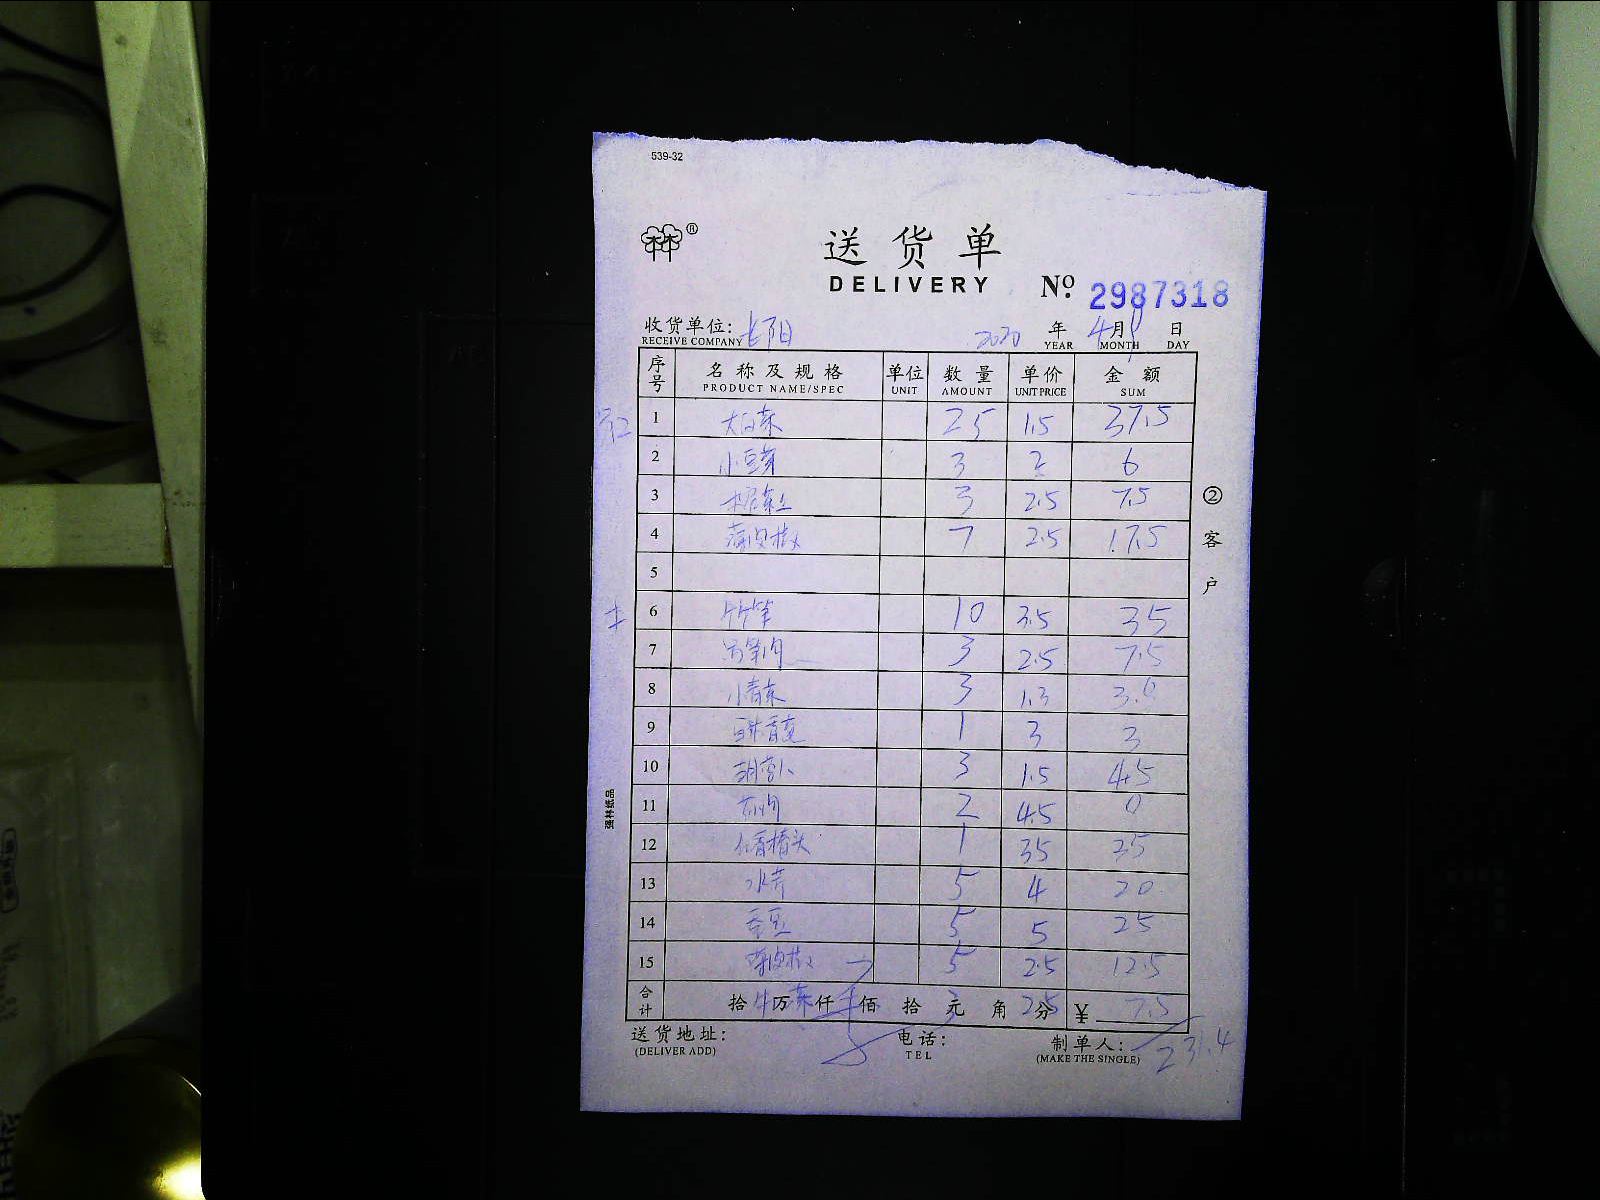 539-32
送货单
DELIVERY
No. 2987318
收货单位: 长阳 2020 年 4月 日
RECEIVE COMPANY YEAR MONTH DAY
序号 名称及规格 单位 数量 单价 金额
PRODUCT NAME/SPEC UNIT AMOUNT UNIT PRICE SUM
1 大白菜 25 1.5 37.5
2 小豆芽 3 2 6
3 3 2.5 7.5
4 薄皮椒 7 2.5 17.5
5
6 竹笋 10 3.5 35
7 3 2.5 7.5
8 小青菜 3 1.3
9 1 3 3
10 胡萝卜 3 1.5 4.5
11 2 4.5
12 1 35 35
13 水芹 5 4 20
14 5 5 25
15 薄皮椒 5 2.5 12.5
合计 拾 万 仟 佰 拾 元 角 2.5 分 ¥ 7.5
送货地址: 电话: 制单人: 231.4
(DELIVER ADD) TEL (MAKE THE SINGLE)
②客户
强林纸品